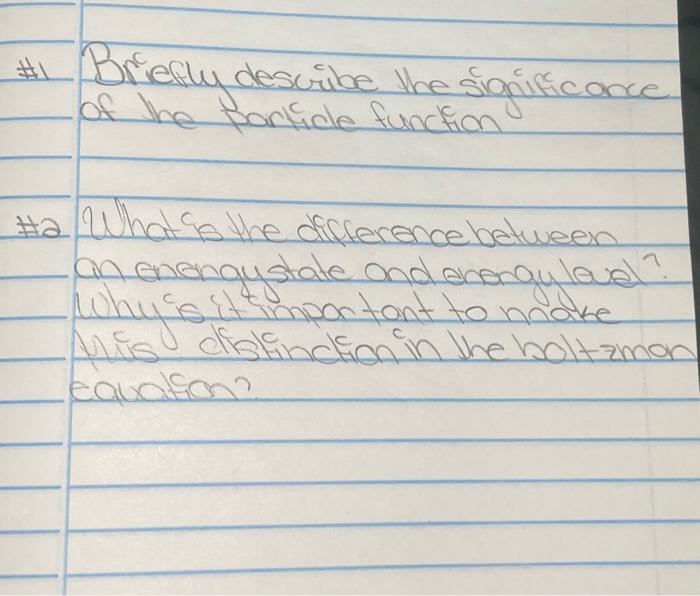 #1 Briefly describe the significance
of the particle function
#2 What is the difference between
an energy state and energy level?
Why is it important to make
this distinction in the boltzman
equation?